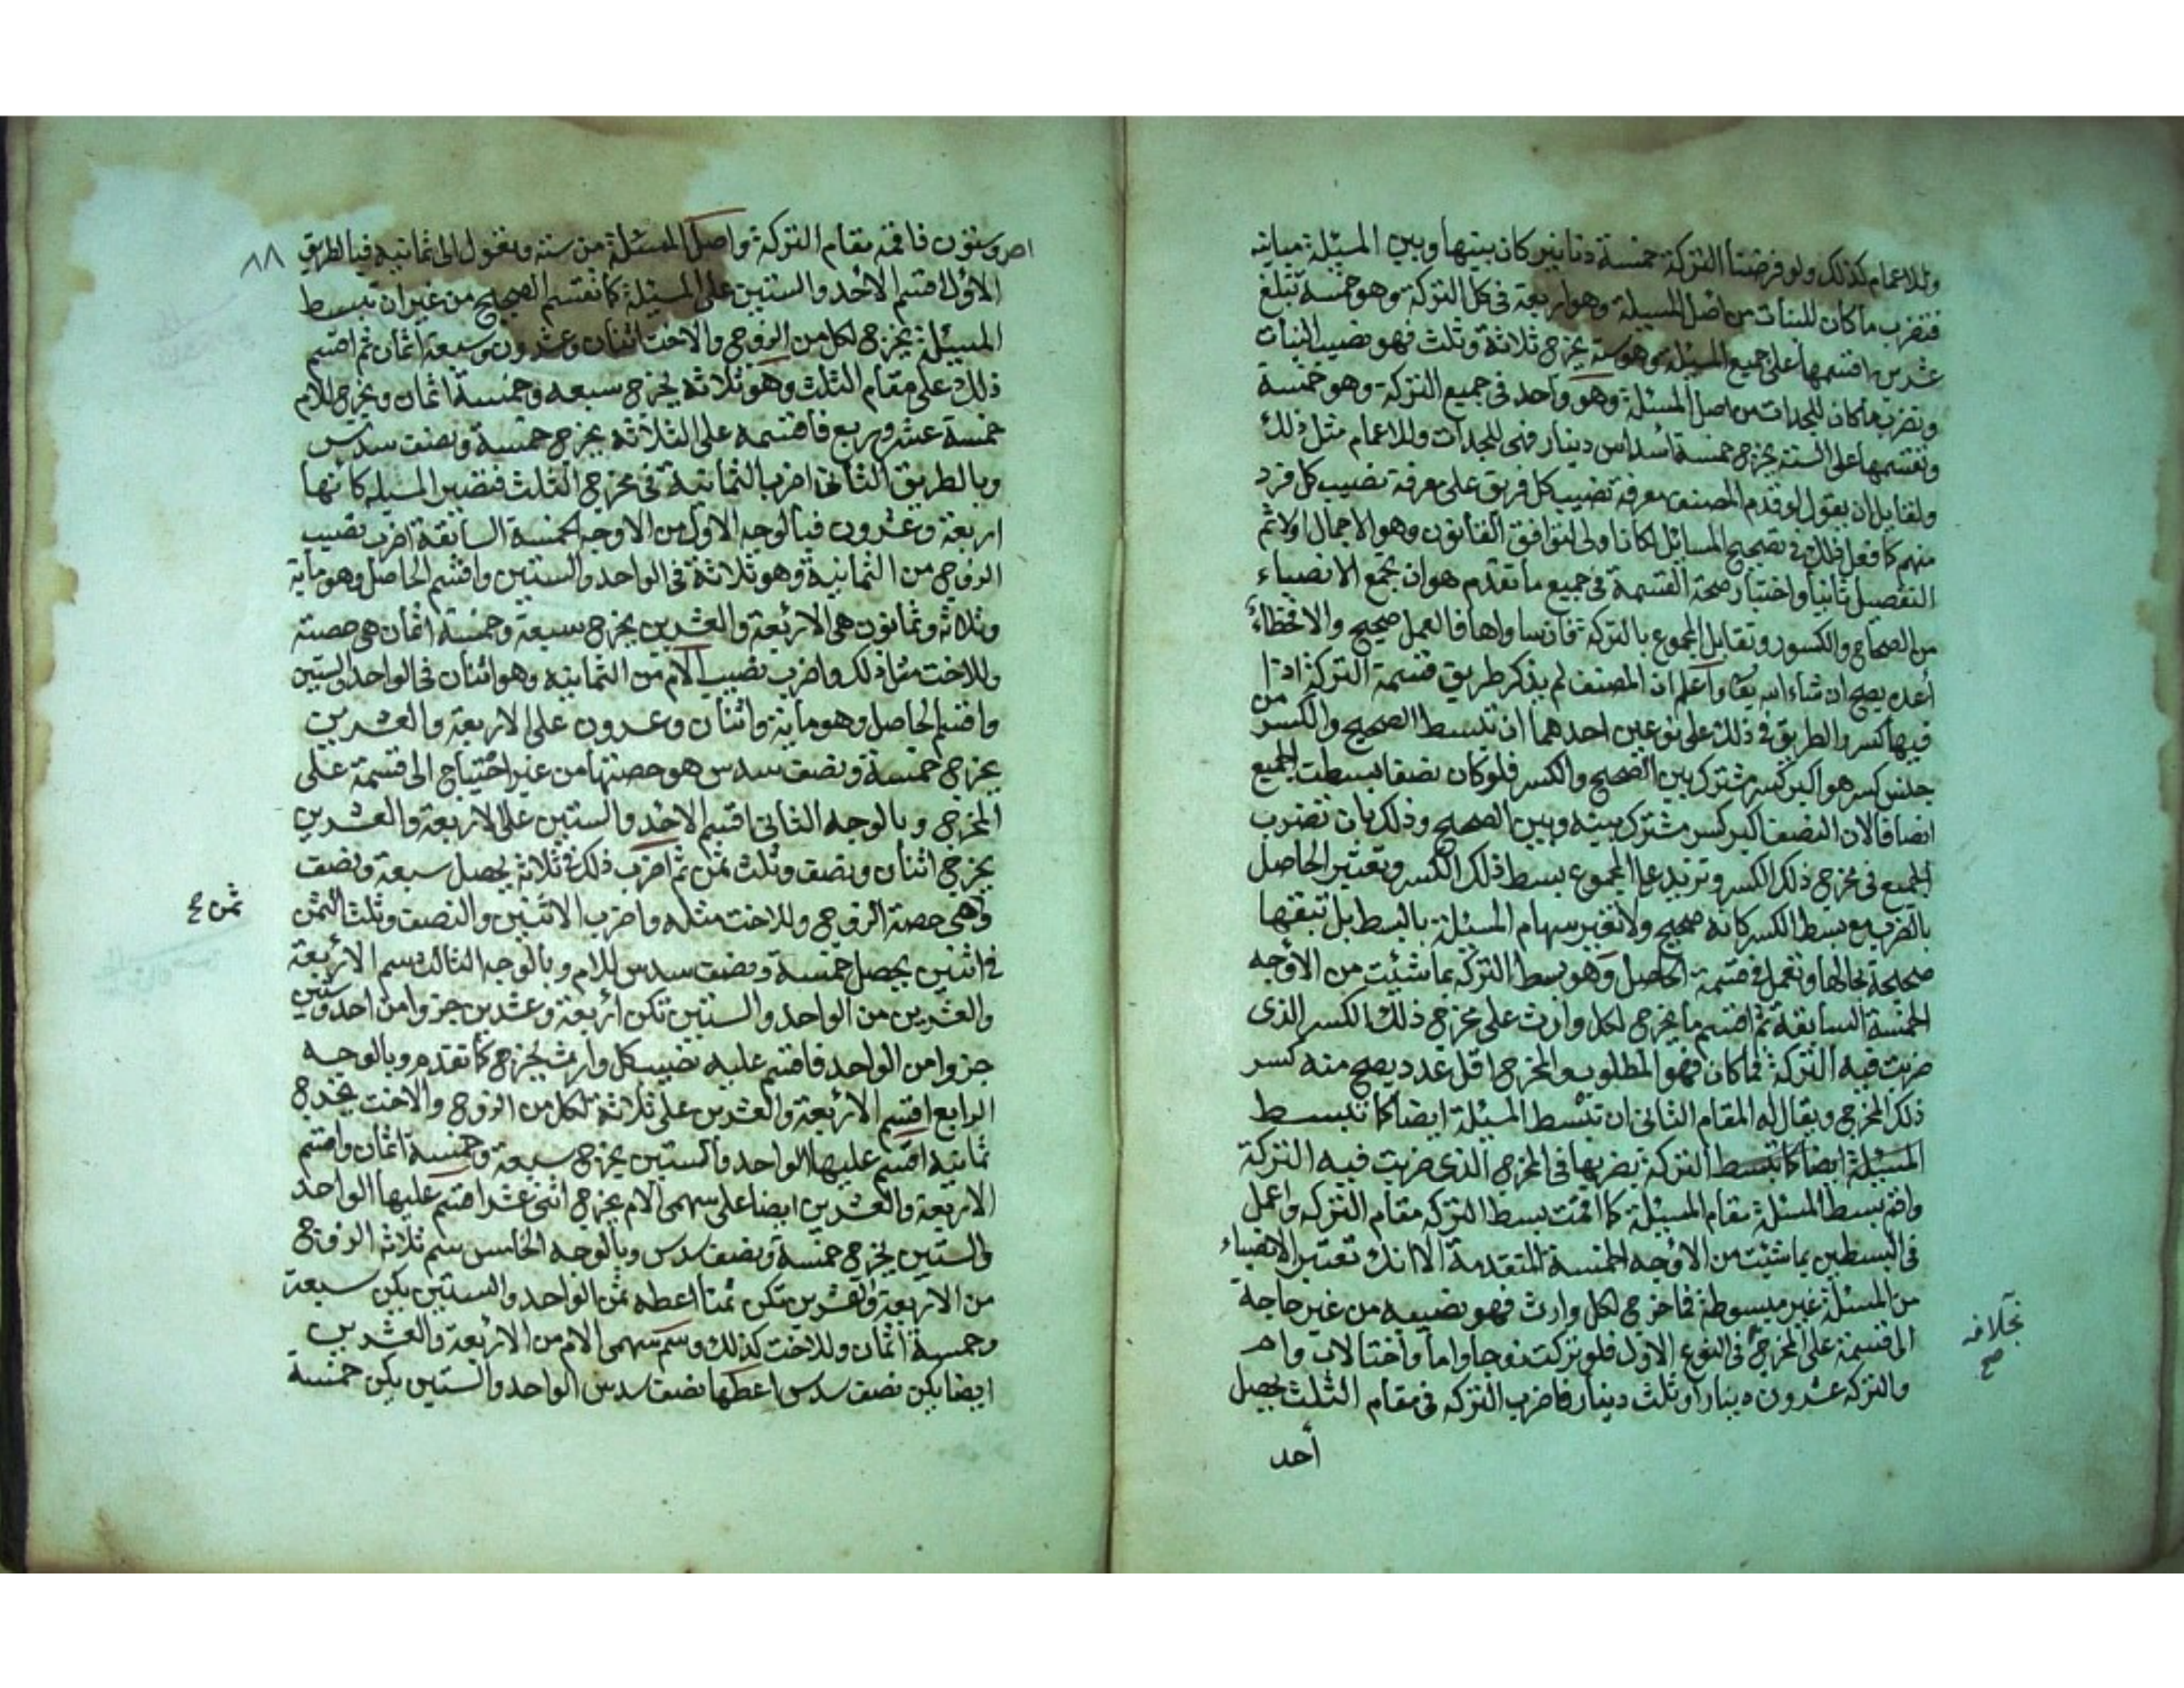 وللاعمام كذلك ولو فرضنا التركة خمسة دنانير كان بينها وبين المسئلة مباينة
فتضرب ما كان للبنات من اصل المسيلة وهو اربعة في كل التركة وهو خمسة تبلغ
عشرين اقسمها على جميع المسئلة وهو ستة يخرج ثلاثة وثلث فهو نصيب البنات
وتضرب ما كان للجدات من اصل المسئلة وهو واحد في جميع التركة وهو خمسة
وتقسمها على الستة يخرج خمسة اسداس دينار فهى للجدات وللاعمام مثل ذلك
ولقايل ان يقول لو قدم المصنف معرفة نصيب كل فريق على معرفة نصيب كل فرد
منهم كما فعل ذلك في تصحيح المسائل لكان اولى لتوافق القانون وهو الاجمال اولا ثم
التفصيل ثانيا واختبار صحة القسمة في جميع ما تقدم هو ان تجمع الانصباء
من الصحاح والكسور وتقابل المجموع بالتركة فان ساواها فالعمل صحيح والا فخطاء
أعده يصح ان شاء الله تعا واعلم ان المصنف لم يذكر طريق قسمة التركة اذا
فيها كسر والطريق في ذلك على نوعين احدهما ان تبسط الصحيح والكسر من
جنس كسر هو اكبر كسر مشترك بين الصحيح والكسر فلو كان نصفا بسطت الجميع
انصافا لان النصف اكبر كسر مشترك بينه وبين الصحيح وذلك بان تضرب
الجميع في مخرج ذلك الكسر وتزيد على المجموع بسط ذلك الكسر وتعتبر الحاصل
بالضرب مع بسط الكسر كانه صحيح ولا تغير سهام المسئلة بالبسط بل تبقها
صحيحة بحالها وتعمل في قسمة الحاصل وهو بسط التركة بما شئت من الاوجه
الخمسة السابقة ثم اقسم ما يخرج لكل وارث على مخرج ذلك الكسر الذى
ضربت فيه التركة فما كان فهو المطلوب والمخرج اقل عدد يصح منه كسر
ذلك المخرج ويقال له المقام الثانى ان تبسط المسئلة ايضا كما تبسط
المسئلة ايضا كما تبسط التركة بضربها في المخرج الذى ضربت فيه التركة
واقم بسط المسئلة مقام المسئلة كما اقمت بسط التركة مقام التركة واعمل
في البسطين بما شئت من الاوجه الخمسة المتقدمة الا انك تعتبر الانصباء
من المسئلة غير مبسوطة فما خرج لكل وارث فهو نصيبه من غير حاجة
الى قسمة على المخرج في النوع الاول فلو تركت زوجا واما واختا لاب وام
والتركة عشرون دينارا وثلث دينار فاضرب التركة في مقام الثلث يحصل
أحد
بخلافه
صح
٨٨
احد وستون فاقمه مقام التركة واصل المسئلة من ستة وتعول الى ثمانية فبالطريق
الاول اقسم الاحد والستين على المسئلة كما تقسم الصحيح من غير ان تبسط
المسئلة يخرج لكل من الزوج والاخت اثنان وعشرون وسبعة اثمان ثم اقسم
ذلك على مقام الثلث وهو ثلاثة يخرج سبعة وخمسة اثمان ويخرج للام
خمسة عشر وربع فاقسمه على الثلاثة يخرج خمسة ونصف سدس
وبالطريق الثانى اضرب الثمانية في مخرج الثلث فتصير المسيلة كانها
اربعة وعشرون فبالوجه الاول من الاوجه الخمسة السابقة اضرب نصيب
الزوج من الثمانية وهو ثلاثة في الواحد والستين واقسم الحاصل وهو ماية
وثلاثة وثمانون على الاربعة والعشرين يخرج سبعة وخمسة اثمان هى حصته
وللاخت مثل ذلك واضرب نصيب الام من الثمانية وهو اثنان في الواحد والستين
واقسم الحاصل وهو ماية واثنان وعشرون على الاربعة والعشرين
يخرج خمسة ونصف سدس هو حصتها من غير احتياج الى قسمة على
المخرج وبالوجه الثانى اقسم الاحد والستين على الاربعة والعشرين
يخرج اثنان ونصف وثلث ثمن ثم اضرب ذلك في ثلاثة يحصل سبعة ونصف
وهى حصة الزوج وللاخت مثله واضرب الاثنين والنصف وثلث الثمن
ثمن صح
في اثنين يحصل خمسة ونصف سدس للام وبالوجه الثالث سم الاربعة
والعشرين من الواحد والستين تكن أربعة وعشرين جزوا من احد وستين
جزوا من الواحد فاقسم عليه نصيب كل وارث يخرج كما تقدم وبالوجه
الرابع اقسم الاربعة والعشرين على ثلاثة لكل من الزوج والاخت يخرج
ثمانية اقسم عليها الواحد والستين يخرج سبعة وخمسة اثمان واقسم
الاربعة والعشرين ايضا على سهمى الام يخرج اثنى عشر اقسم عليها الواحد
والستين يخرج خمسة ونصف سدس وبالوجه الخامس سم ثلاثة الزوج
من الاربعة والعشرين تكن ثمنا اعطه ثمن الواحد والستين يكن سبعة
وخمسة اثمان وللاخت كذلك وسم سهمى الام من الاربعة والعشرين
ايضا يكن نصف سدس اعطها نصف سدس الواحد والستين يكن خمسة